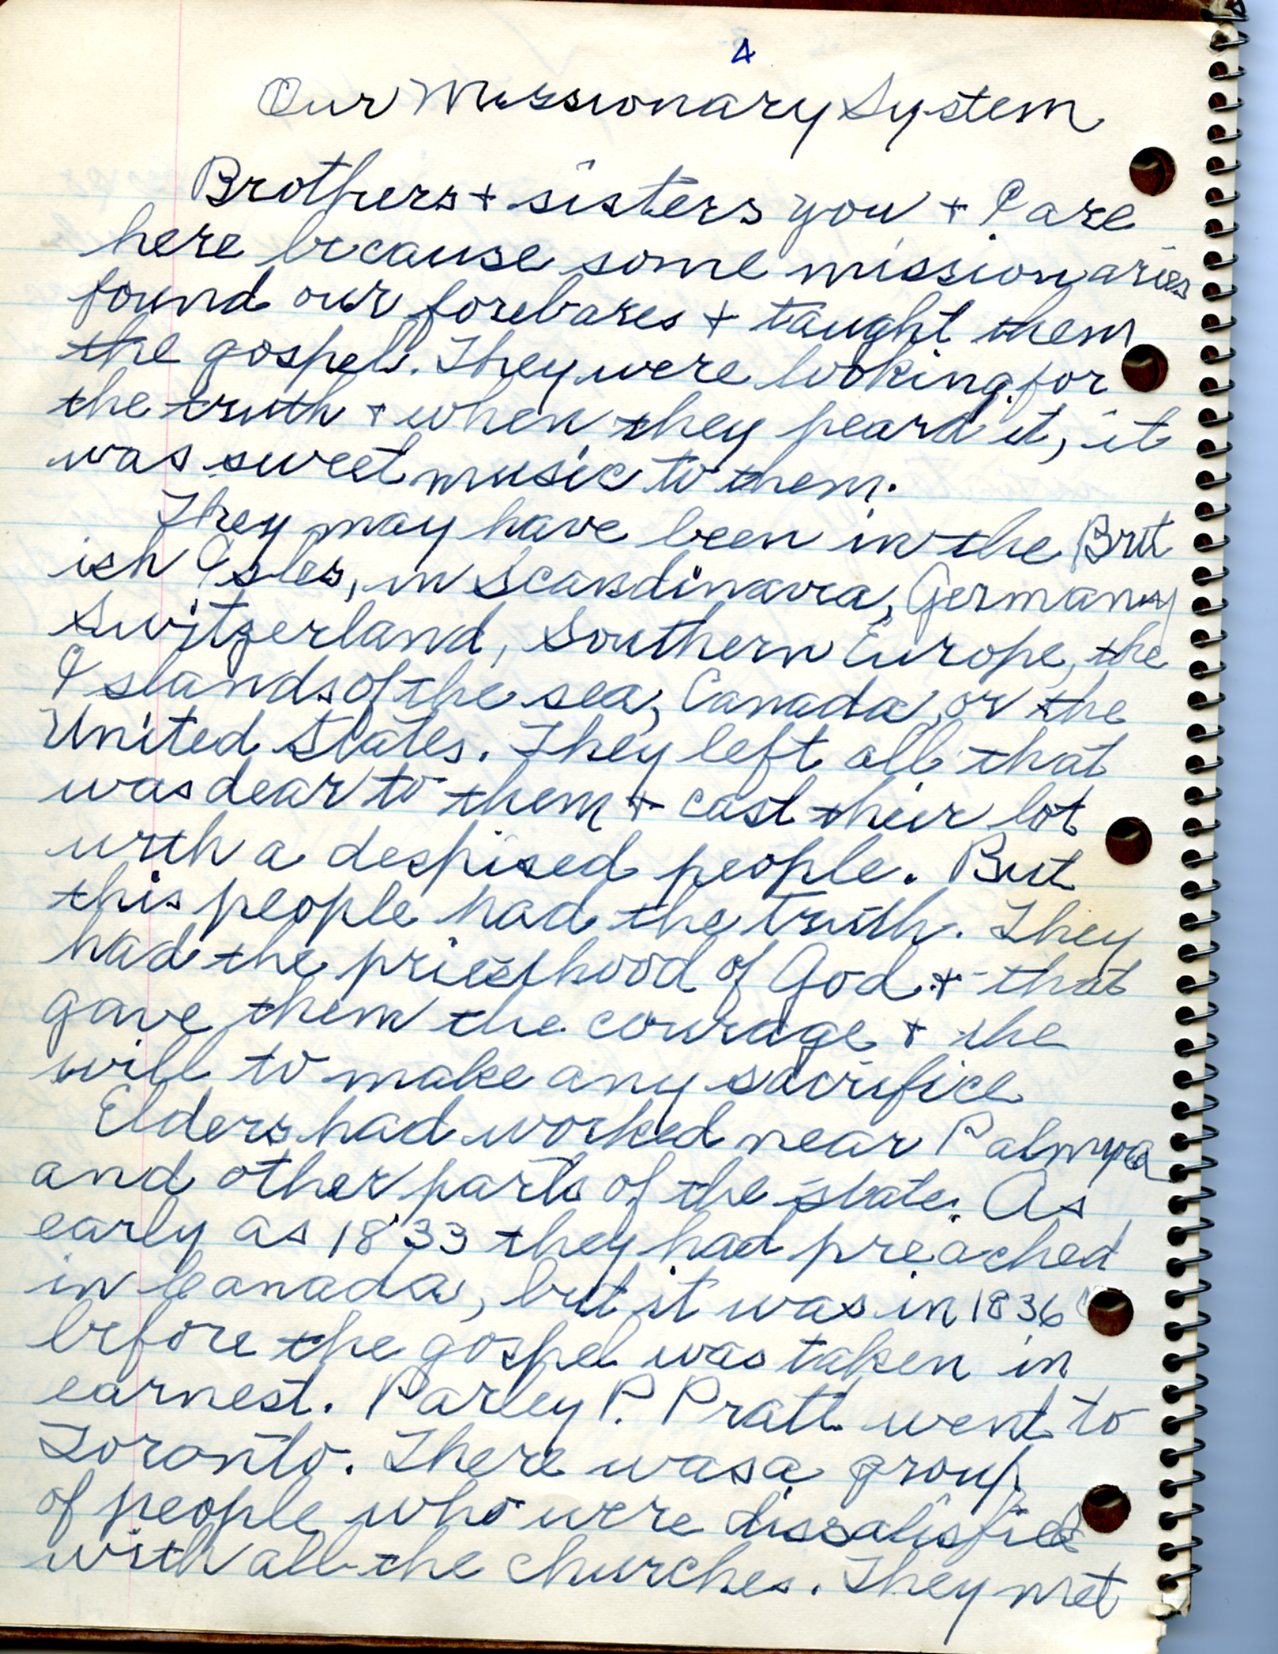 4
Our Missionary System
Brothers + sisters you + I are
here because some missionaries
found our forebares + taught them
the gospel. They were looking for
the truth + when they heard it, it
was sweet music to them.
They may have been in the Brit
ish Isles, in Scandinavia, Germany
Switzerland, Southern Europe, the
Islands of the sea, Canada, or the
United States. They left all that
was dear to them + cast their lot
with a despised people. But
this people had the truth. They
had the priesthood of God + that
gave them the courage + the
will to make any sacrifice
Elders had worked near Palmyra
and other parts of the state. As
early as 1833 they had preached
in Canada, but it was in 1836
before the gospel was taken in
earnest. Parley P. Pratt went to
Toronto. There was a group
of people who were dissatisfied
with all the churches. They met